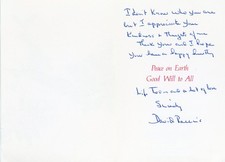 I don't know who you are
but I appreciate your
Kindness & thoughts of me
Thank you and I hope
you have a happy healthy
Peace on Earth
Good Will to All
Life and a lot of love
Sincerely